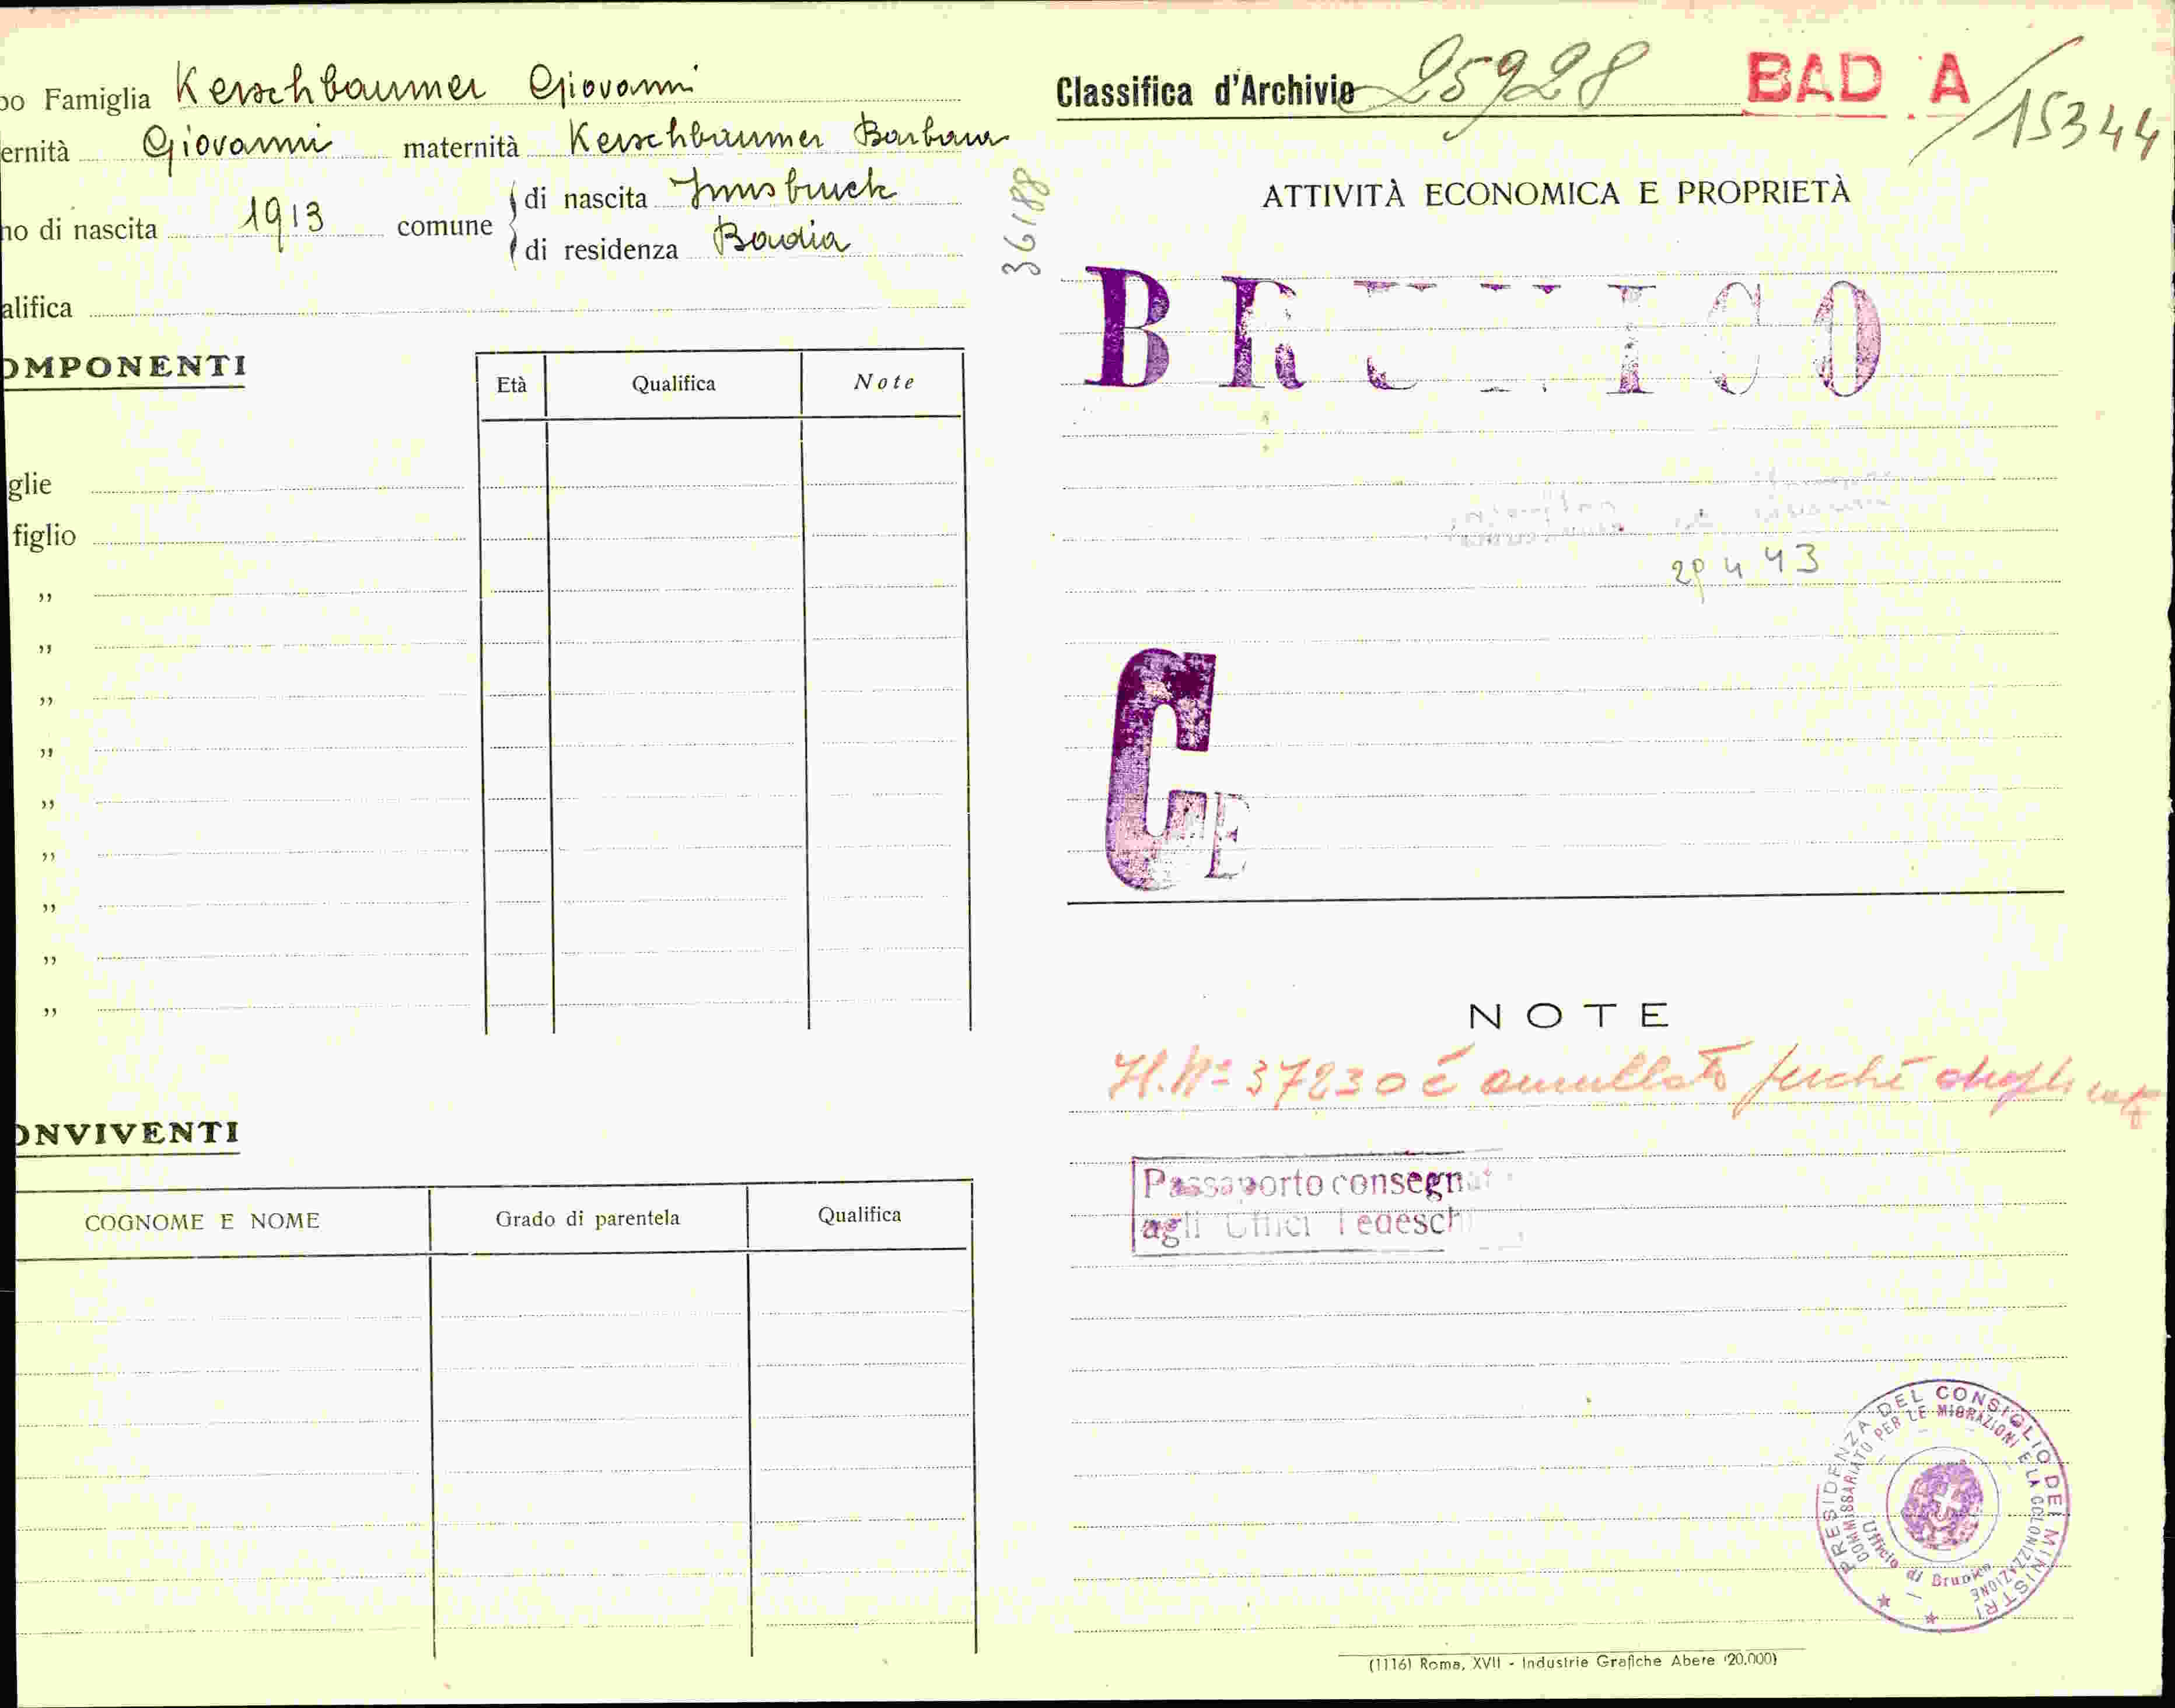 po Famiglia Kerschbaumer Giovanni
ernità Giovanni maternità Kerschbaumer Barbara
no di nascita 1913 comune di nascita Innsbruck
di residenza Badia
alifica
OMPONENTI
Età Qualifica Note
glie
figlio
"
"
"
"
"
"
"
"
"
ONVIVENTI
COGNOME E NOME Grado di parentela Qualifica
36188
Classifica d'Archivio 25928 BAD A /15344
ATTIVITÀ ECONOMICA E PROPRIETÀ
BRUNICO
29 4 43
CE
NOTE
Il N= 37230 è annullato perché duplicato
Passaporto consegnat
agli Uffici Tedeschi
PRESIDENZA DEL CONSIGLIO DEI MINISTRI
COMMISSARIATO PER LE MIGRAZIONI E LA COLONIZZAZIONE
Ufficio di Brunico
(1116) Roma, XVII - Industrie Grafiche Abete (20.000)